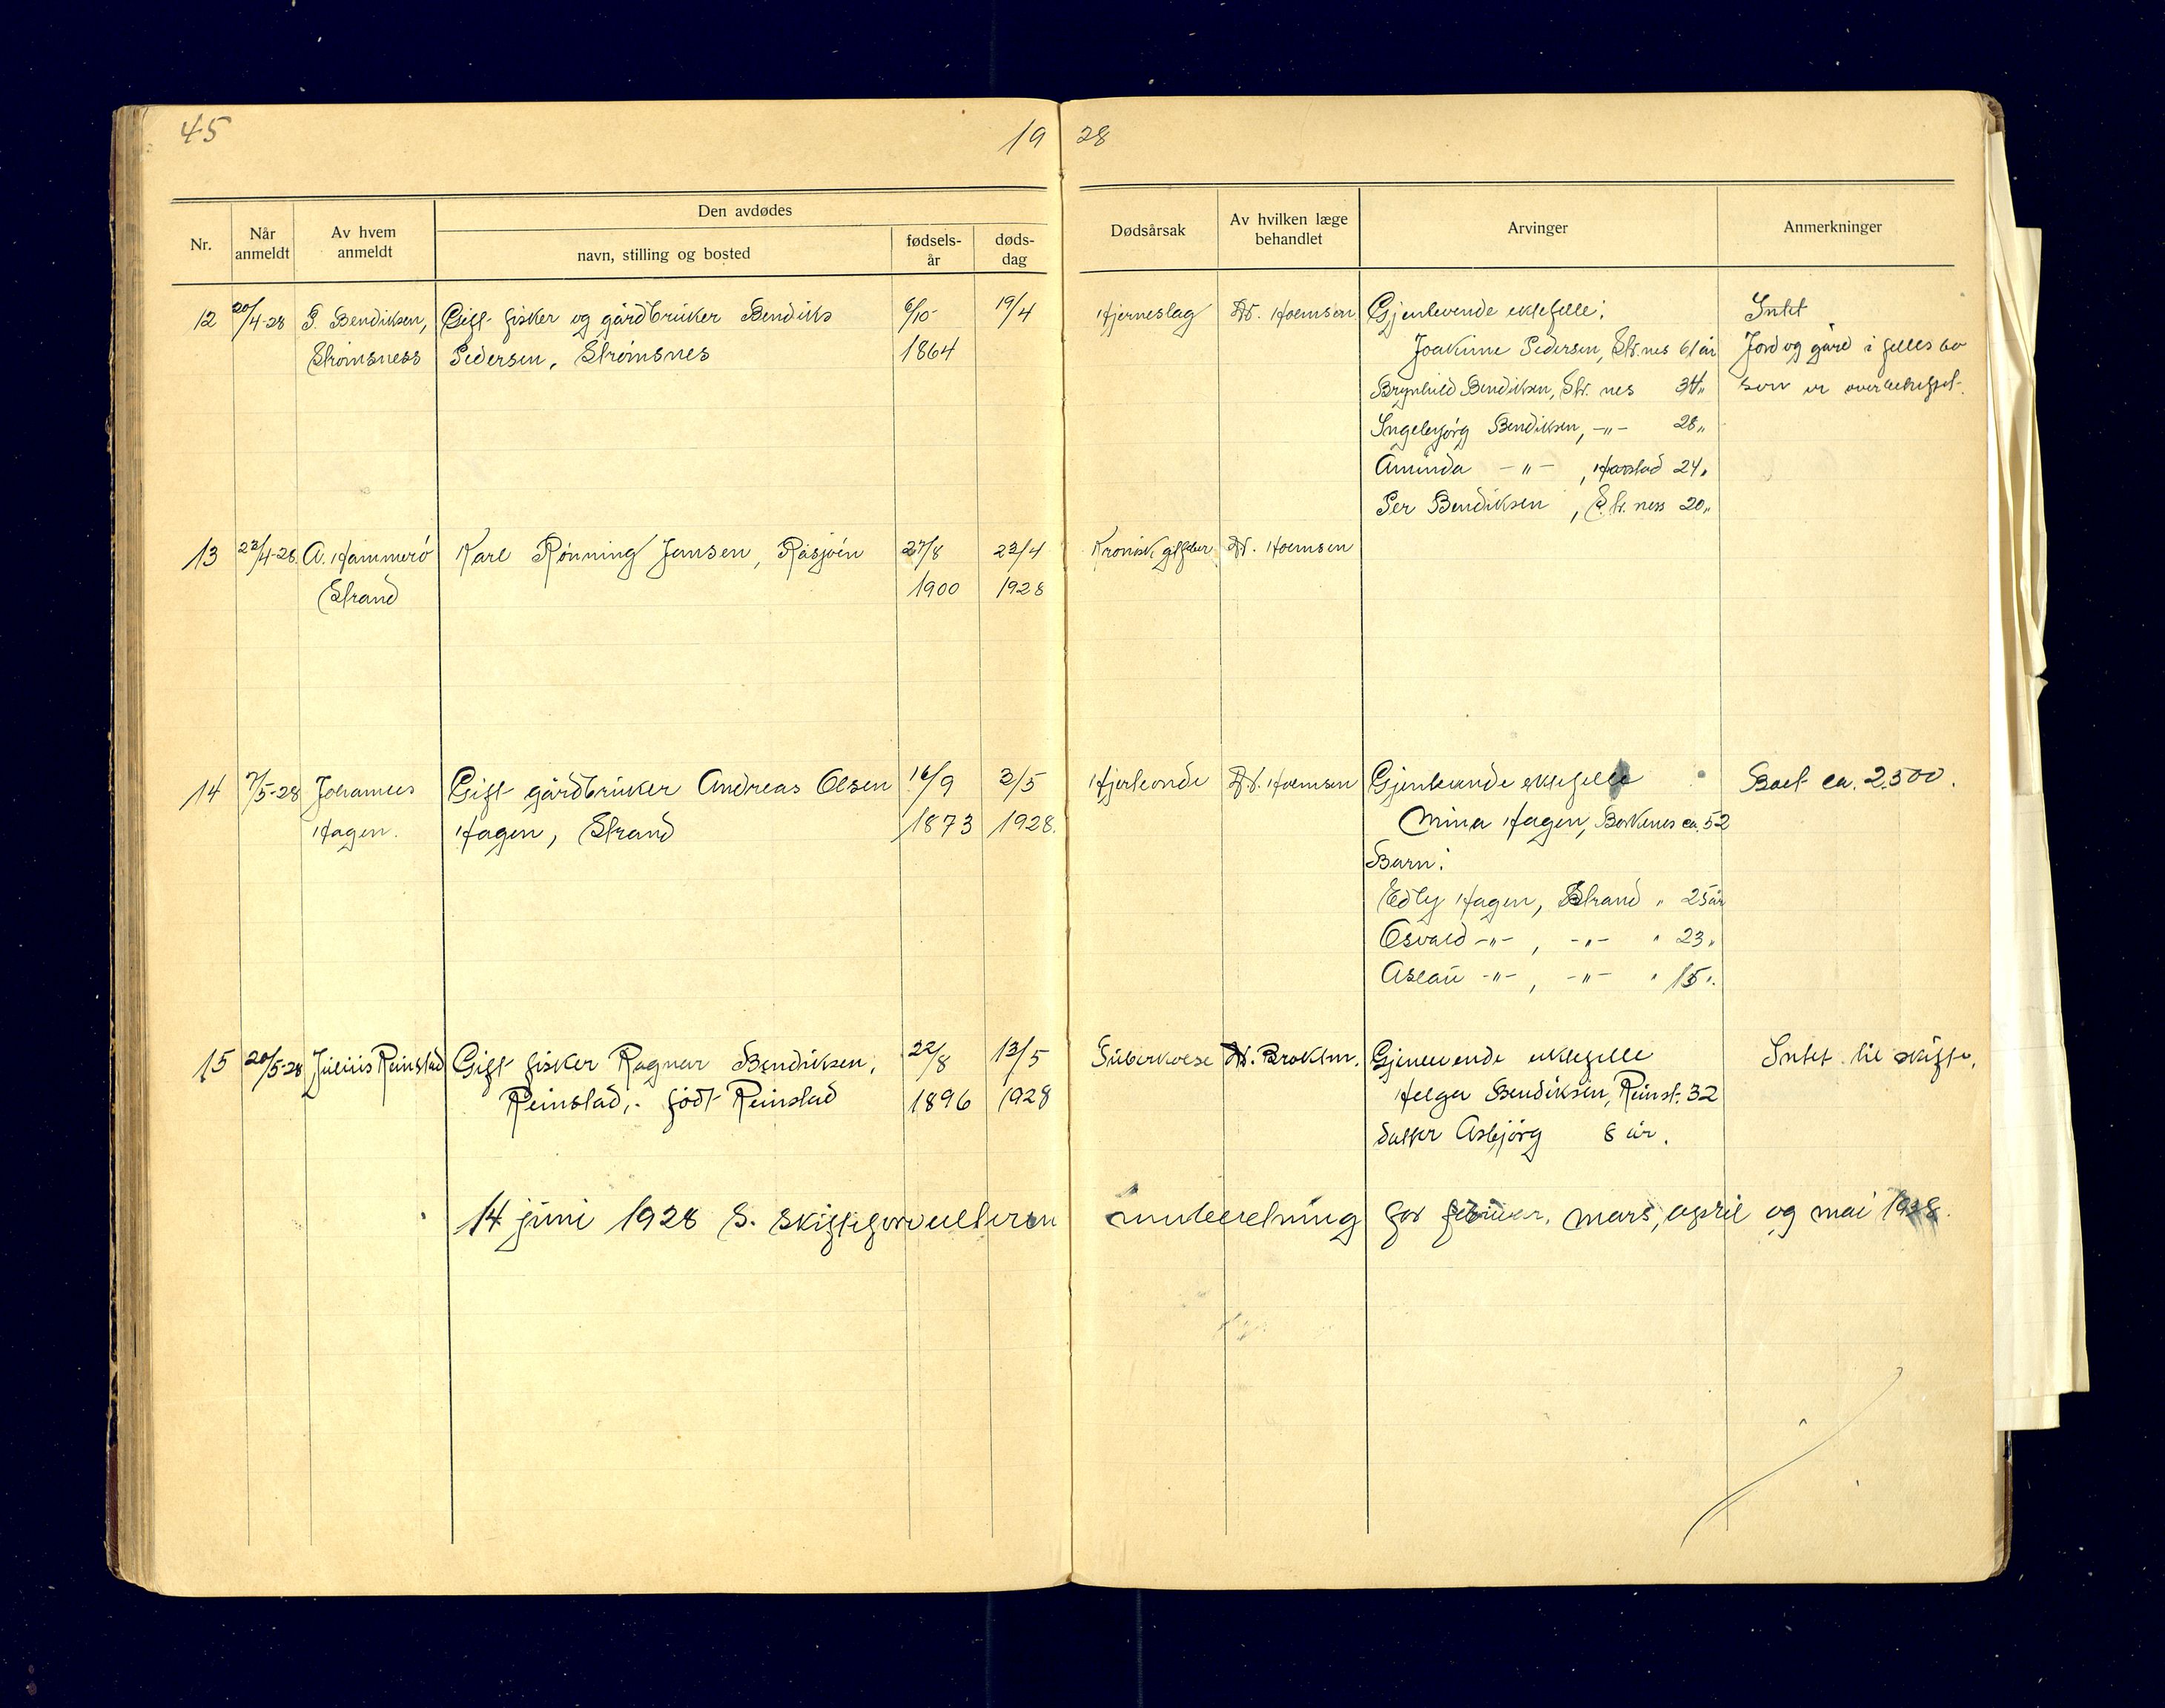 45
19 28
Nr.
Når anmeldt
Av hvem anmeldt
Den avdødes
navn, stilling og bosted
fødsels-år
døds-dag
Dødsårsak
Av hvilken læge behandlet
Arvinger
Anmerkninger
12 20/4-28 P. Bendiksen, Gift fisker og gårdbruker Bendiks 6/10 19/4 Hjerneslag Dr. Holmsen Gjenlevende ektefelle: Intet
Strømsness Pedersen, Strømsnes 1864 Joakime Pedersen, Str.nes 61 år Jord og gård i felles bo
Brynhild Bendiksen, Str. nes 34 „ som er overbeheftet.
Ingeborg Bendiksen, -„- 28 „
Aminda -„- , Harstad 24 „
Per Bendiksen , Str. ness 20 „
13 23/4-28 A. Hammerö Karl Rønning Jensen, Råsjøen 27/8 22/4 Kronisk Dr. Holmsen
Strand 1900 1928
14 7/5-28 Johannes Gift gårdbruker Andreas Olsen 16/9 3/5 Hjerteonde Dr. Holmsen Gjenlevende ektefelle Boet ca. 2.500.
Hagen. Hagen, Strand 1873 1928. Mina Hagen, Borkenes ca. 52
Barn:
Edly Hagen, Strand „ 25 år
Osvald -„- , -„- „ 23 „
Aslau -„- , -„- „ 15 „
15 20/5-28 Julius Reinstad Gift fisker Ragnar Bendiksen, 22/8 13/5 Tuberkolse Dr. Brokstm. Gjenlevende ektefelle Intet til skifte.
Reinstad, født Reinstad 1896 1928 Helga Bendiksen, Reinst. 32
datter Asbjørg 8 år.
14 juni 1928 S. skifteforvalteren innberetning for februar, mars, april og mai 1928.